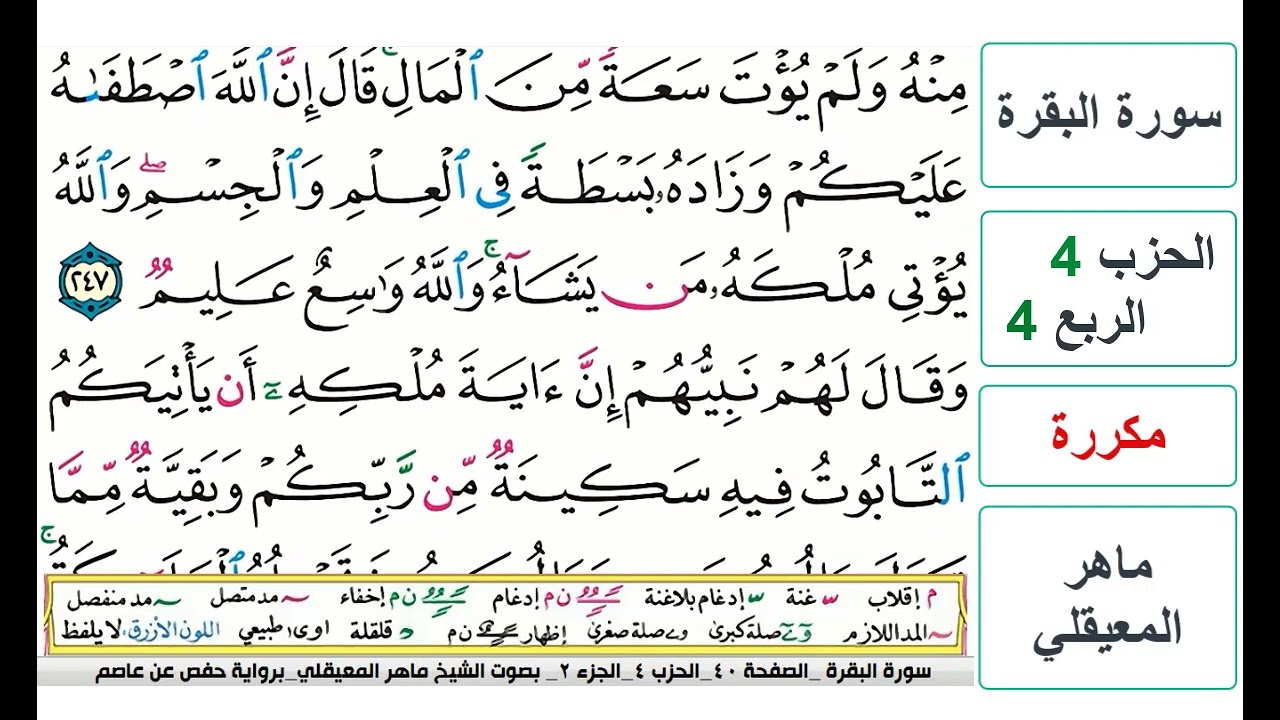 مِنْهُ وَلَمْ يُؤْتَ سَعَةً مِّنَ ٱلْمَالِ ۚ قَالَ إِنَّ ٱللَّهَ ٱصْطَفَىٰهُ
عَلَيْكُمْ وَزَادَهُۥ بَسْطَةً فِى ٱلْعِلْمِ وَٱلْجِسْمِ ۖ وَٱللَّهُ
يُؤْتِى مُلْكَهُۥ مَن يَشَآءُ ۚ وَٱللَّهُ وَٰسِعٌ عَلِيمٌ ٢٤٧
وَقَالَ لَهُمْ نَبِيُّهُمْ إِنَّ ءَايَةَ مُلْكِهِۦٓ أَن يَأْتِيَكُمُ
ٱلتَّابُوتُ فِيهِ سَكِينَةٌ مِّن رَّبِّكُمْ وَبَقِيَّةٌ مِّمَّا
م إقلاب غنة إدغام بلاغنة ن م إدغام ن م إخفاء مد متصل مد منفصل
المد اللازم صلة كبرى صلة صغرى إظهار ن م قلقلة اوى طبيعي اللون الأزرق: لا يلفظ
سورة البقرة _الصفحة ٤٠_الحزب ٤_الجزء ٢_ بصوت الشيخ ماهر المعيقلي_برواية حفص عن عاصم
سورة البقرة
الحزب 4
الربع 4
مكررة
ماهر
المعيقلي